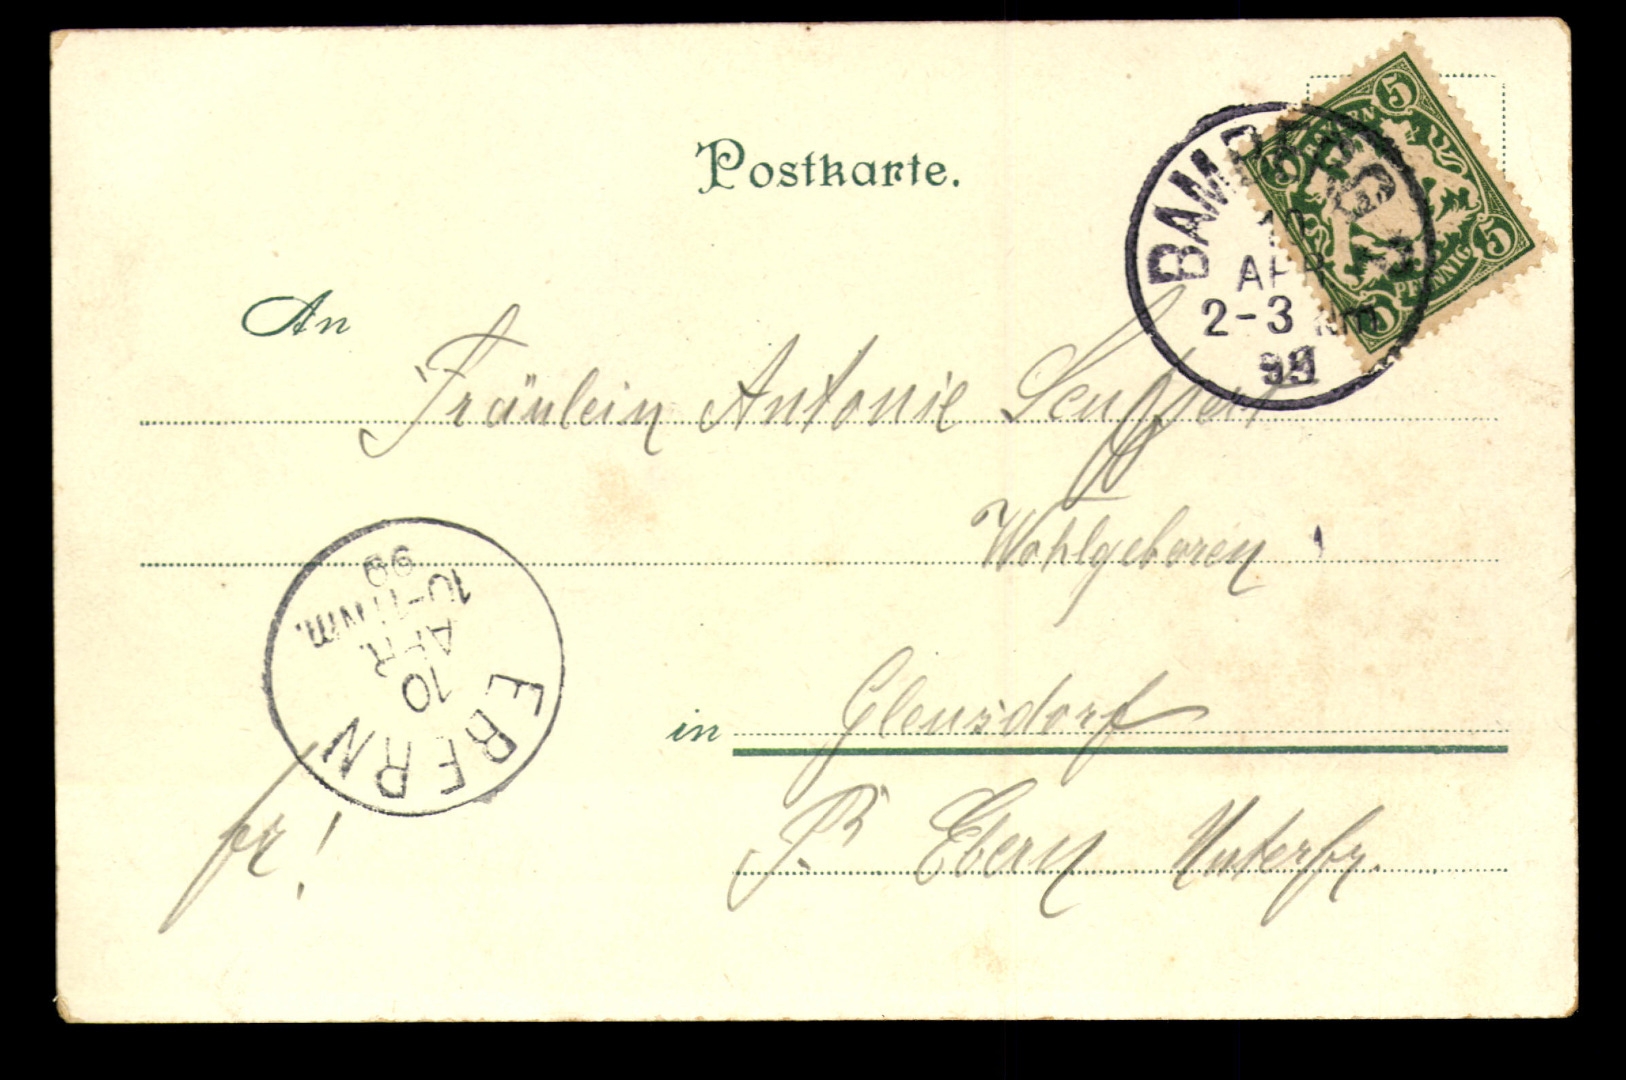 Postkarte.
BAYERN
5 5
5 5
PFENNIG
BAMBERG
10
APR
2-3 Nm
99
An
Fräulein Antonie
Wohlgeboren
EBERN
10
APR.
10-11 Nm.
99
in Gleusdorf
P. Ebern Unterfr.
fr!